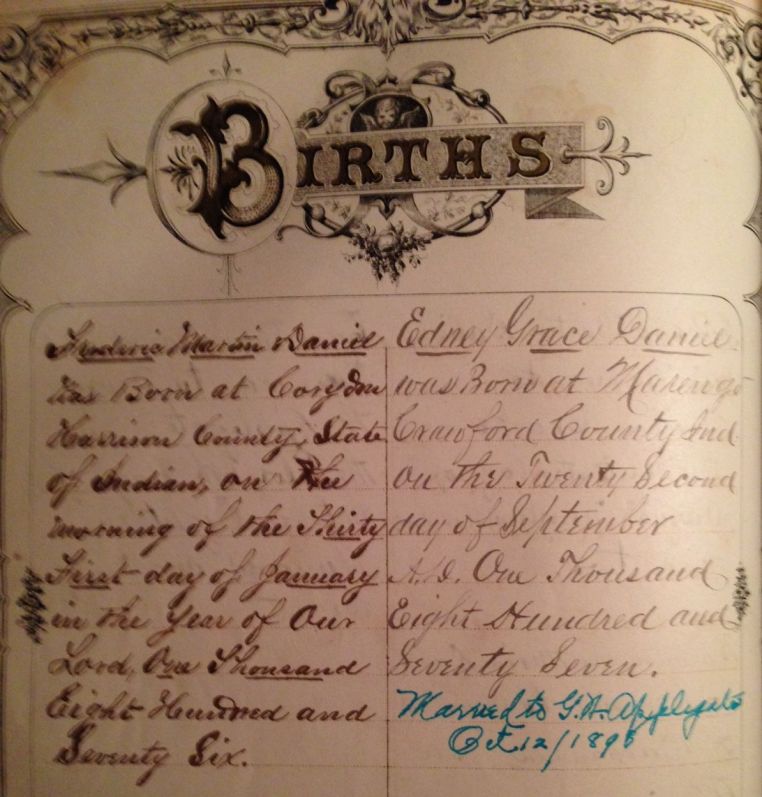 BIRTHS
Frederic Martin Daniel
was Born at Corydon
Harrison County, State
of Indian, on the
morning of the Thirty
First day of January
in the Year of Our
Lord, One Thousand
Eight Hundred and
Seventy Six.
Edney Grace Daniel
was Born at Marengo
Crawford County Ind
on the Twenty Second
day of September
A.D. One Thousand
Eight Hundred and
Seventy Seven.
Married to G.A. Applegate
Oct. 12/1895